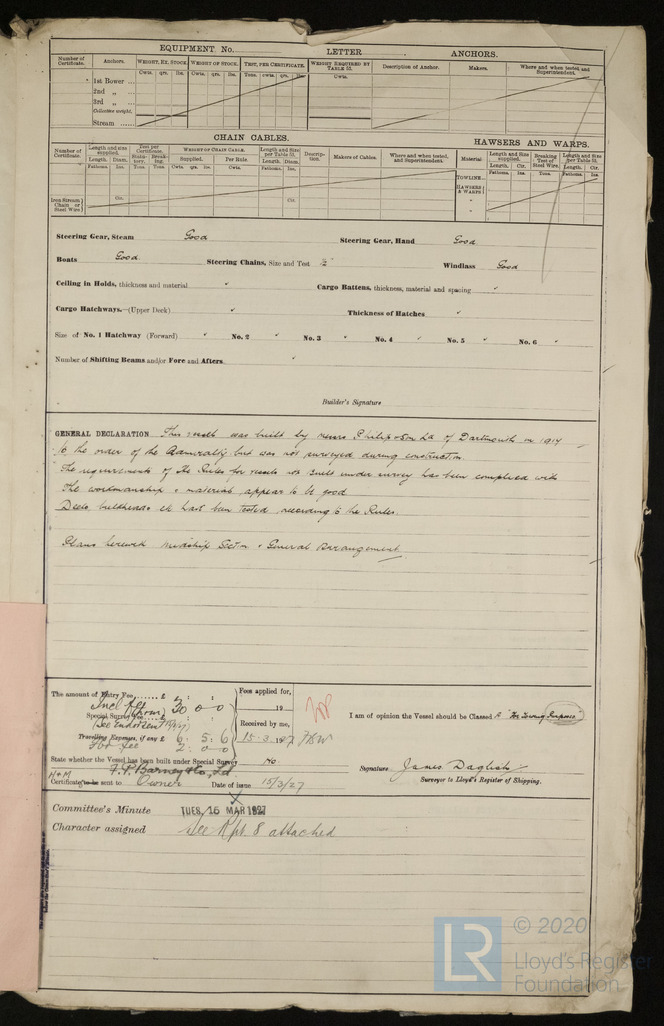 EQUIPMENT. No. LETTER ANCHORS.
Number of Certificate. Anchors. WEIGHT, EX. STOCK. WEIGHT OF STOCK. TEST, PER CERTIFICATE. WEIGHT REQUIRED BY TABLE 53. Description of Anchor. Makers. Where and when tested, and Superintendent.
Cwts. qrs. lbs. Cwts. qrs. lbs. Tons. cwts. qrs. lbs. Cwts.
1st Bower
2nd „
3rd „
Collective weight.
Stream
CHAIN CABLES. HAWSERS AND WARPS.
Number of Certificate. Length and size supplied. Test per Certificate. WEIGHT OF CHAIN CABLE. Length and Size per Table 53. Description. Makers of Cables. Where and when tested, and Superintendent. Material Length and Size supplied. Breaking Test of Steel Wire. Length and Size per Table 53.
Length. Diam. Statutory. Breaking. Supplied. Per Rule. Length. Diam. Length. Cir. Length. Cir.
Fathoms. Ins. Tons. Tons. Cwts. qrs. lbs. Cwts. Fathoms. Ins. Fathoms. Ins. Tons. Fathoms. Ins.
TOWLINE
HAWSERS & WARPS
Iron Stream Chain or Steel Wire Cir. Cir.
Steering Gear, Steam Good Steering Gear, Hand Good
Boats Good Steering Chains, Size and Test Windlass Good
Ceiling in Holds, thickness and material ✓ Cargo Battens, thickness, material and spacing ✓
Cargo Hatchways.—(Upper Deck) ✓ Thickness of Hatches ✓
Size of No. 1 Hatchway (Forward) ✓ No. 2 ✓ No. 3 ✓ No. 4 ✓ No. 5 ✓ No. 6 ✓
Number of Shifting Beams and/or Fore and Afters ✓
Builder's Signature
GENERAL DECLARATION This vessel was built by Messrs Philip & Son Ld of Dartmouth in 1914
to the order of the Admiralty but was not surveyed during construction.
The requirements of the Rules for vessels not built under survey has been complied with
The workmanship & materials appear to be good
Decks bulkheads etc have been tested according to the Rules.
Plans herewith Midship Section & General Arrangement.
The amount of Entry Fee £ : : Fees applied for,
19
Special Survey Fee £
30 0 0 Received by me,
Travelling Expenses, if any £ 6 : 5 : 6 15.3.1927
2 : 0 0
I am of opinion the Vessel should be Classed A "For Towing Purposes"
State whether the Vessel has been built under Special Survey No.
F. P. Barney & Co., Ld
Certificate to be sent to Owner Date of issue 15/3/27
Signature James Daglish
Surveyor to Lloyd's Register of Shipping.
Committee's Minute TUES. 15 MAR 1927
Character assigned See Rpt. 8 attached
© 2020
LR
Lloyd's Register
Foundation